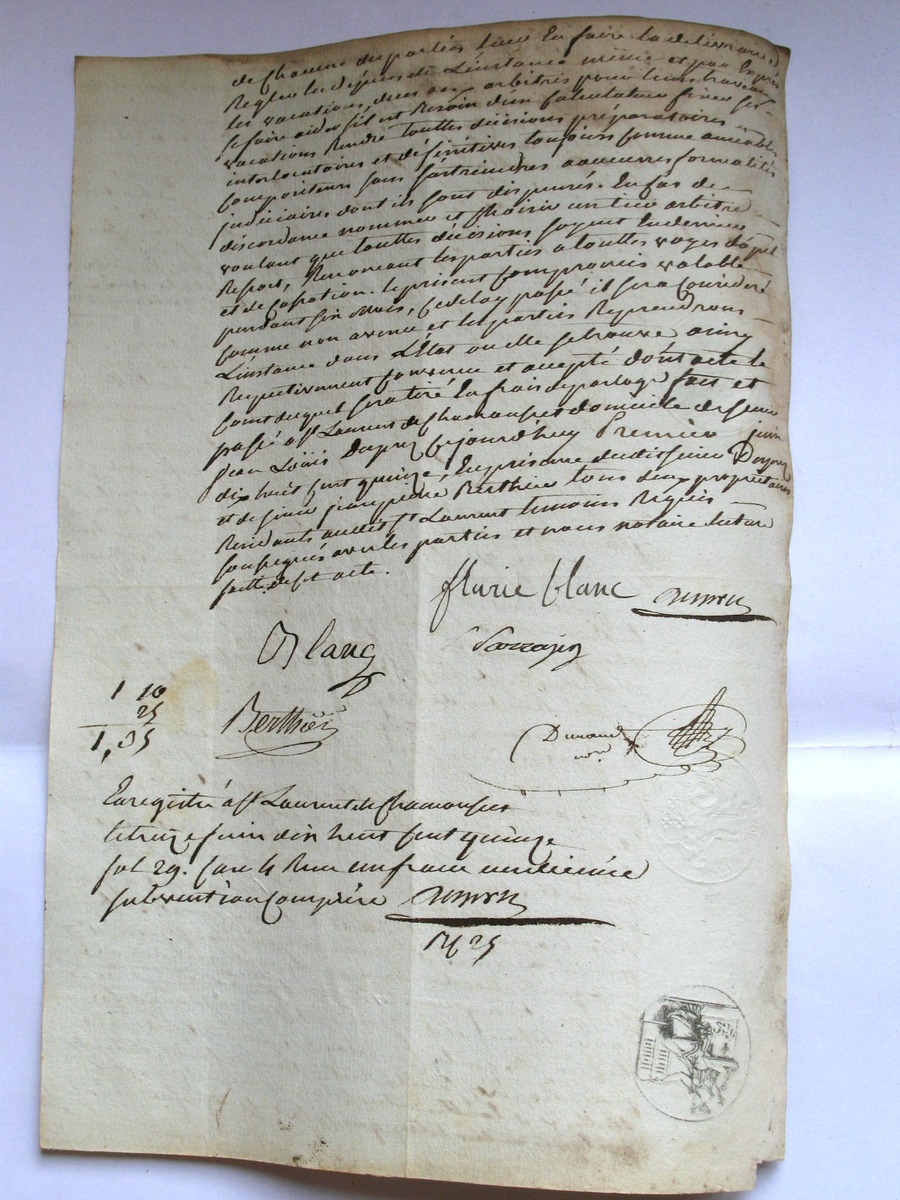 de chacune des parties lieux En faire la delivrance
Regler les depens de L'instance même et par Exprés
les vacations, dues aux arbitres pour leurs travaux
se faire aider s'il est Besoin d'un Calculateur fixer ses
vacations Rendre touttes décisions préparatoires
interlocutoires et définitives toujours comme amiables
Compositeurs sans s'astreindre a aucunes formalités
judiciaires dont ils sont dispensés. En cas de
discordance nommer et Choisir un tiers arbitre
voulant que touttes décisions soyent En dernier
Resort, Renonceant les parties a touttes voyes d'apel
et de Cassation. le présent Compromis valable
pendant six mois, Ce delay passé il sera Considéré
Comme non avenu et les parties Reprendrons
L'instance dans L'État ou elle se trouve ainsy
Respectivement Convenu et accepté dont acte le
Cout duquel sera tiré En frais de partage fait et
passé a St Laurent de Chamousset domicile de sieur
Jean Loüis Dupuy Cejourd'huy Premier juin
dix huit Cent quinze, En présance dudit sieur Dupuy
et de sieur jean pierre Berthier tous deux propriétaires
Residants audit St Laurent temoins Réquis
Soussignés avec les parties et nous notaire lecture
faitte de Ct acte.
flurie blanc
Blanc
1 10
25
1,35
Berthier
Durand
nore
Enregistré a St Laurent de Chamousset
le treize juin dix huit Cent quinze
fol 29. Case 4 Reçu un franc
subvention Comprise